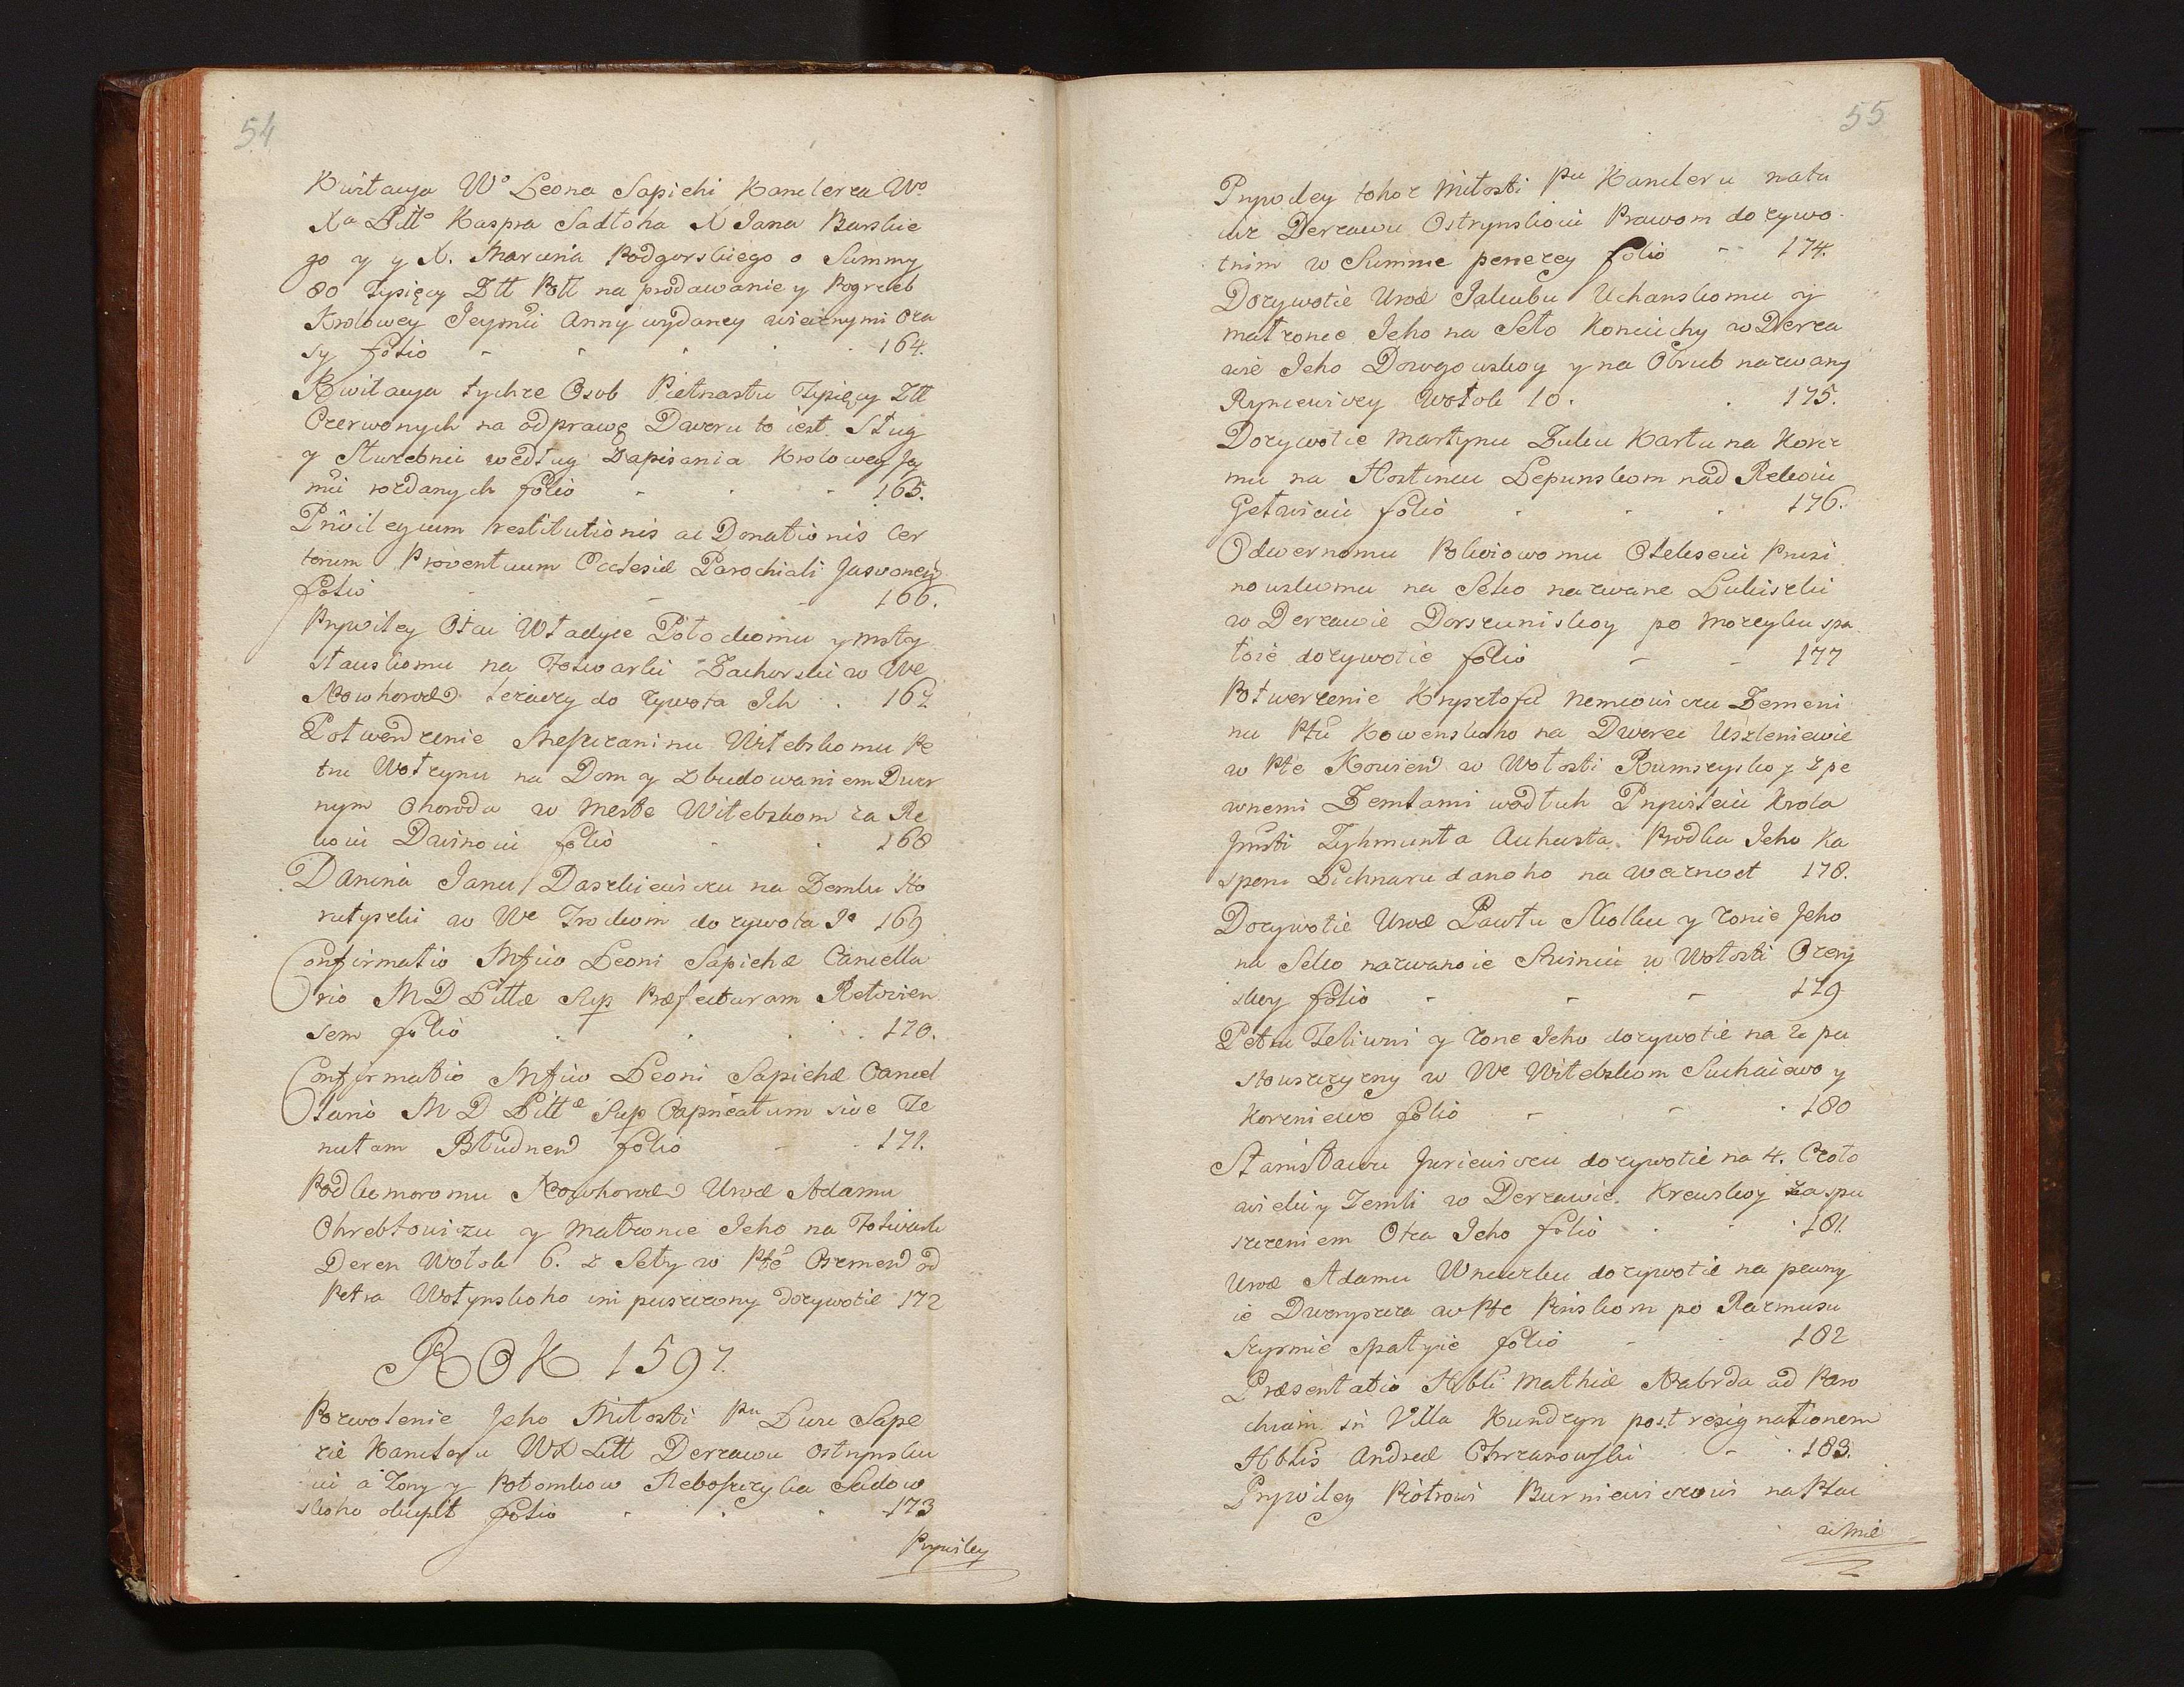 54
Kwitacya Wo Leona Sapiehi Kanclerza Wo
Xa Litto Kaspra Sadłoha X Jana Barskie
go y y X. Marcina Podgorskiego o Summy
80 Tysięcy Złł Poll na prodawanie y Pogrzeb
Krolowey Jeymći Anny wydaney wiecznymi cza
sy folio - - - - 164.
Kwitacya tychze Osob Pietnastu Tysięcy Złł
Czerwonych na odprawę Dworu to iest Sług
y Służebnic według Zapisania Krolowey Jey
mći rozdanych folio - - - 165.
Privilegium restitutionis ac Donationis cer
torum Proventuum Ecclesiæ Parochiali Jasvonen
folio - - - 166.
Prywiley Otcu Władyce Połockomu y Msty
sławskomu na Folwarki Zachorski w We
Nowhorod leżaczy do żywota Ich . 167
Potwerdzenie Meszczaninu Witebskomu Pe
tru Wołzynu na Dom y z budowaniem Dwor
nym Ohorodu w Meste Witebskom za Re
koiu Dwinoiu folio . . 168
Danina Janu Daszkiewiczu na Zemlu Ko
rutyszki w We Trockom do żywota Jo 169
Confirmatio Mfico Leoni Sapiehæ Cancella
rio M D Littæ Sup Præfecturam Retovien
sem folio . . . . 170.
Confirmatio Mfico Leoni Sapiehæ Cancel
lario M D Littæ Sup Capneatum sive Te
nutam Bludnen folio - - 171.
Podkomoromu Nowhorod Urod Adamu
Chrebtowiczu y Matronie Jeho na Folwark
Deren Wołok 6. z Seły w Pte Oszmen od
Petra Wołynskoho im puszczony dożywotie 172
ROK 1597.
Pozwolenie Jeho Miłosti Pu Lwu Sape
zie Kancleru WX Litt Derzawu Ostrynsku
iu a Żony y Potomkow Neboszczyka Sadow
skoho okuplt folio . . . 173
Prywiley
55
Prywiley tohoż Miłosti Pu Kancleru na tu
iuż Derzawu Ostrynskoiu Prawom dożywo
tnim w Summe penezey folio - 174.
Dożywotie Urod Jakubu Uchanskomu y
małżonce Jeho na Seło Koniuchy w Derza
wie Jeho Dowgowskoy y na Obrub nazwany
Ryncewicey Wołok 10. . 175.
Dożywotie Martynu Zuku Kartu na Korcz
mu na Hostincu Lepunskom nad Rekoiu
Getwicu folio . . . 176.
Odwernomu Pokoiowomu Olekseiu Pruzi
nowskomu na Selco nazwane Lukiszki
w Derzawie Dorsunisskoy po Moreyku spa
łoie dożywotie folio - - 177
Potwerzenie Krysztofu Nemcowiczu Zemeni
nu Ptu Kowenskoho na Dworec Uszleniewie
w Pte Kowien w Wołosti Rumszyskoy z pe
wnemi Zemlami wodłuh Prywileiu Krola
Jmśti Zyhmunta Auhusta Prodku Jeho Ka
speru Lichnaru danoho na Wecznost 178.
Dożywotie Urod Pawłu Skolku y żonie Jeho
na Selco nazwanoie Rusniu w Wołosti Ozery
skoy folio - - - 179
Petru Feliwni y żone Jeho dożywotie na z pu
stowszczyzny w We Witebskom Suchaiewo y
Korzniewo folio - - . 180
Stanisławu Juriewiczu dożywotie na 4. Czoło
wieki y Zemli w Derzawie Krewskoy za spu
szczeniem Otca Jeho folio . . . 181.
Urod Adamu Wnuczku dożywotie na pewny
ie Dworyszcza w Pte Pinskom po Razmusu
Skyrmie spałyie folio - . 182
Præsentatio Hbli Mathiæ Nabrda ad Paro
chiam in Villa Kundzyn post resignationem
Hblis Andreæ Chrzanowski . - . 183.
Prywiley Piotrowi Burniewiczowi na Plac
w Mie